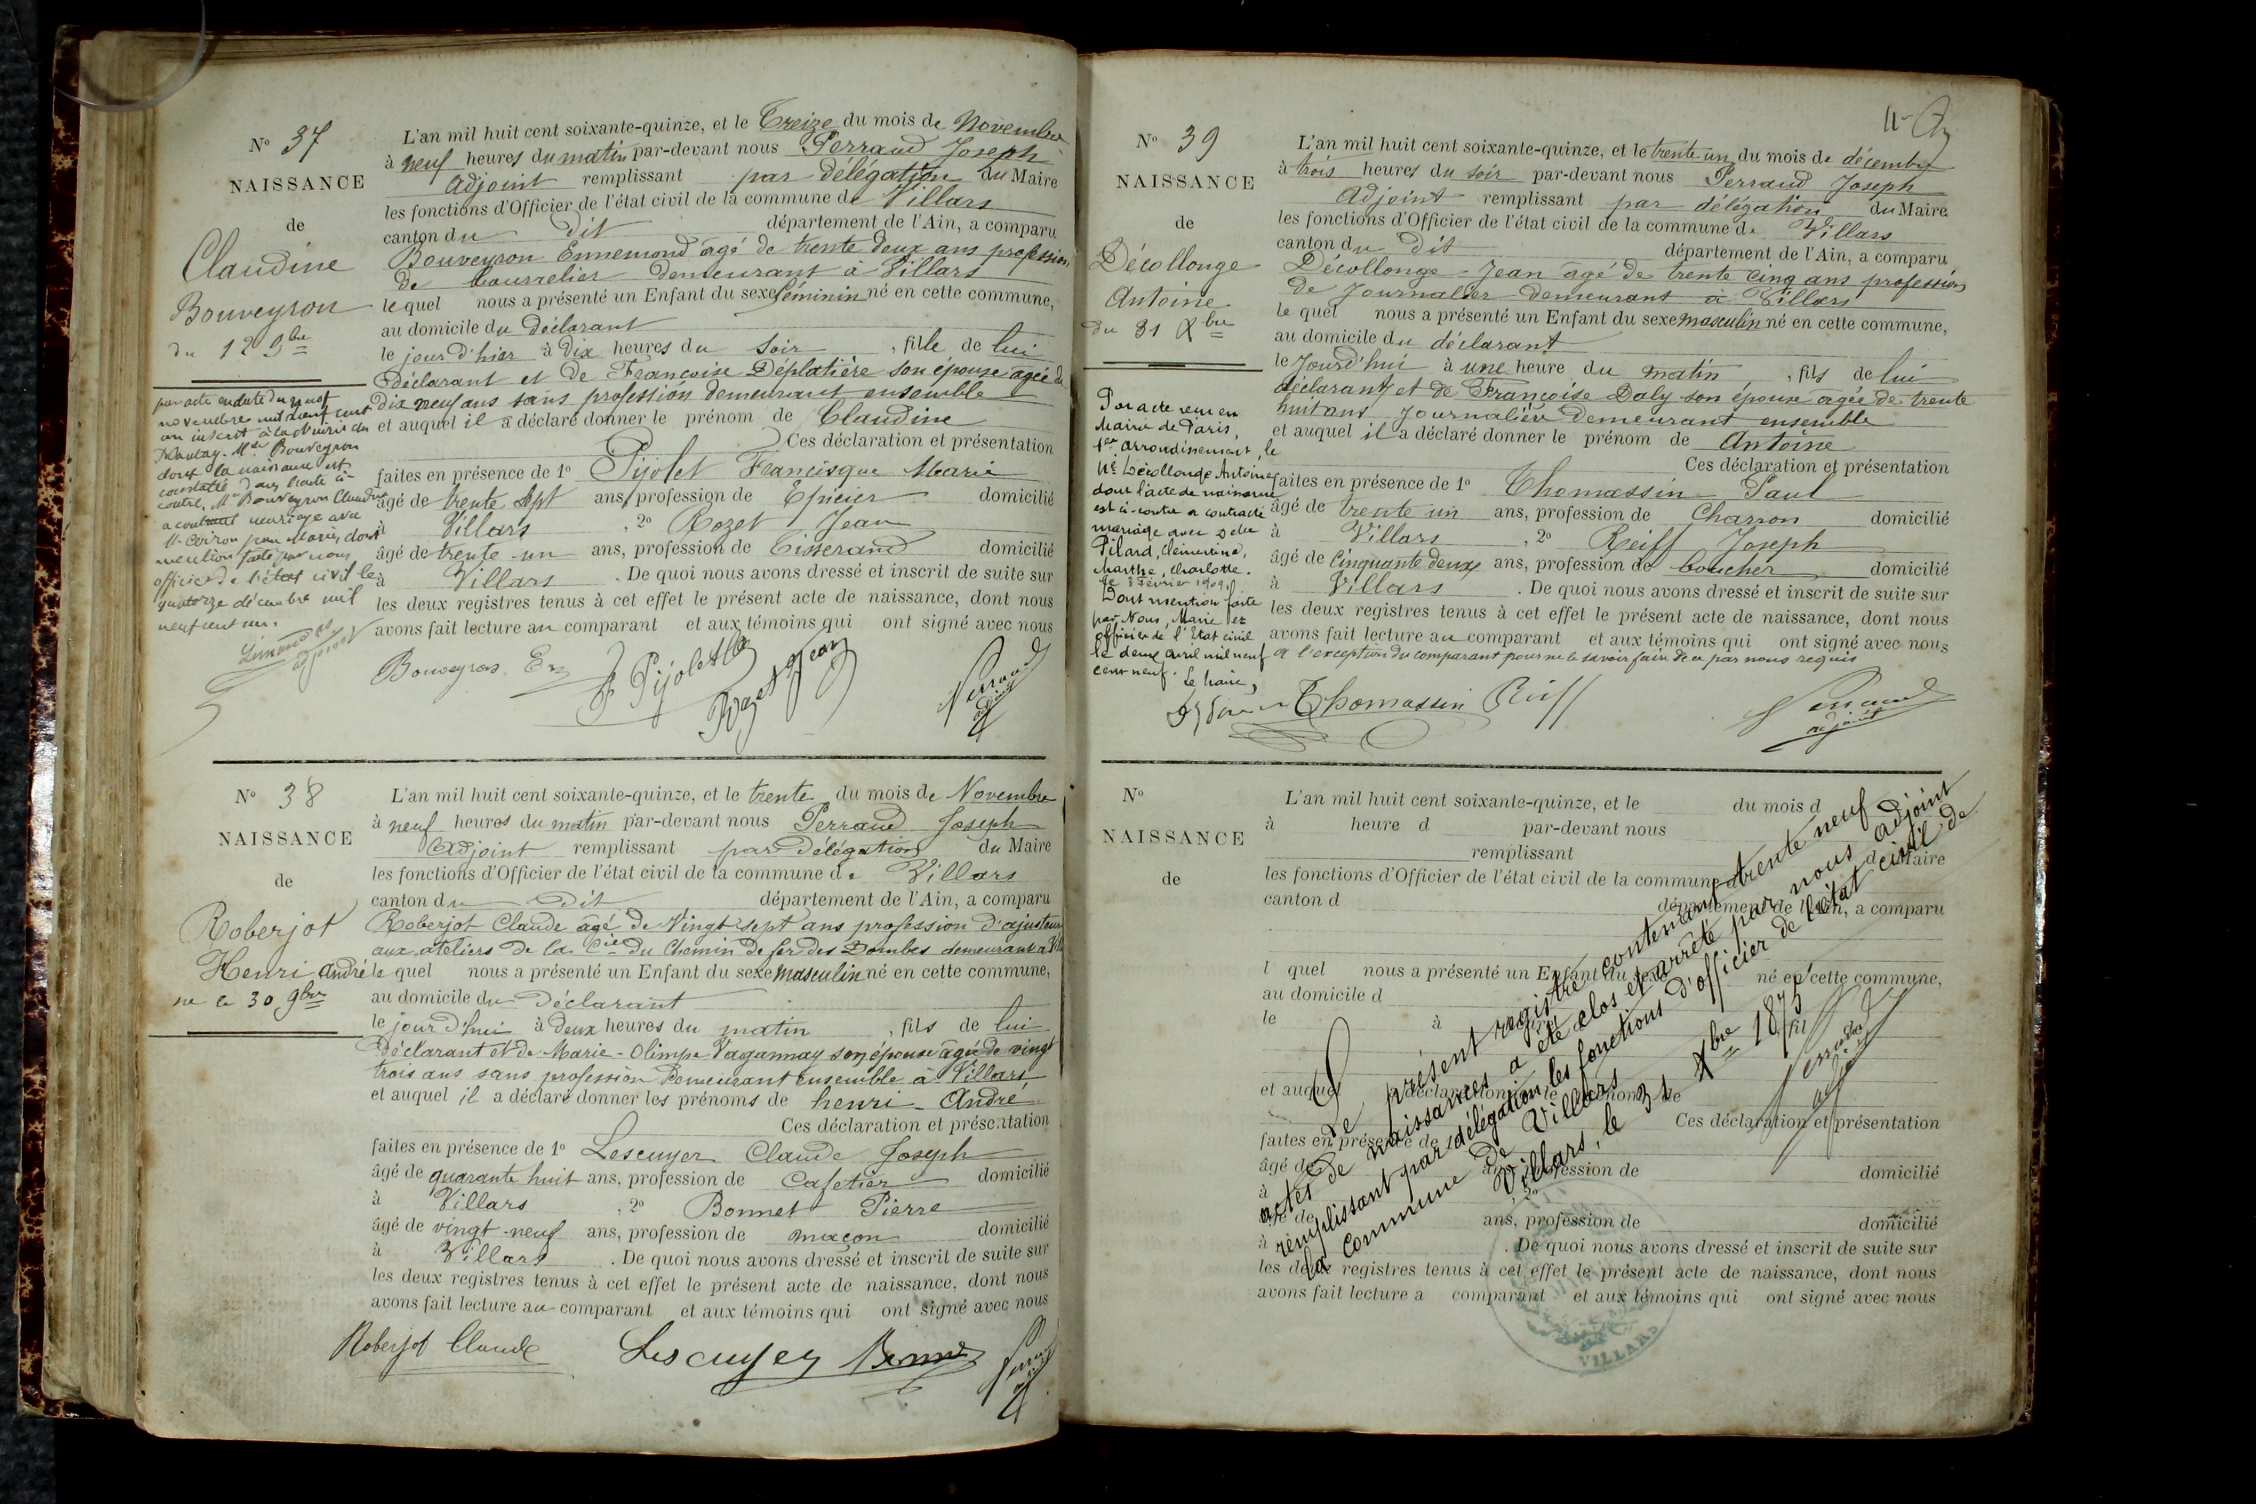 N° 37
NAISSANCE
de
Claudine
Bouveyron
du 12 9bre
par acte en date du neuf
novembre mil neuf cent
un inscrit à la Mairie de
Mlle Bouveyron
dont la naissance est
constatée dans l'acte ci-
contre, Mlle Bouveyron Claudine
a contracté mariage avec
M. Coiron Jean Marie, dont
mention faite par nous
officier de l'état civil le
quatorze décembre mil
neuf cent un.
L'an mil huit cent soixante-quinze, et le Treize du mois de Novembre
à neuf heures du matin par-devant nous Perraud Joseph
Adjoint remplissant par délégation du Maire
les fonctions d'Officier de l'état civil de la commune de Villars
canton du Dit département de l'Ain, a comparu
Bouveyron Ennemond âgé de trente deux ans profession
de bourrelier demeurant à Villars
le quel nous a présenté un Enfant du sexe féminin né en cette commune,
au domicile du Déclarant
le jour d'hier à Dix heures du Soir , fille de lui
déclarant et de Francoise Déplatière son épouse agée de
dix neuf ans sans profession demeurant ensemble
et auquel il a déclaré donner le prénom de Claudine
Ces déclaration et présentation
faites en présence de 1° Pijolet Francisque Marie
âgé de trente sept ans, profession de Epicier domicilié
à Villars , 2° Rozet Jean
âgé de trente-un ans, profession de Tisserand domicilié
à Villars . De quoi nous avons dressé et inscrit de suite sur
les deux registres tenus à cet effet le présent acte de naissance, dont nous
avons fait lecture au comparant et aux témoins qui ont signé avec nous
Bouveyron En
F Pijolet
Rozet Jean
Perraud
adjoint
N° 38
NAISSANCE
de
Roberjot
Henri André
né le 30 9bre
L'an mil huit cent soixante-quinze, et le trente du mois de Novembre
à neuf heures du matin par-devant nous Perraud Joseph
Adjoint remplissant par Délégation du Maire
les fonctions d'Officier de l'état civil de la commune de Villars
canton du Dit département de l'Ain, a comparu
Roberjot Claude âgé de Vingt sept ans profession d'ajusteur
aux ateliers de la Cie du Chemin de fer des Dombes demeurant à
le quel nous a présenté un Enfant du sexe masculin né en cette commune,
au domicile du Déclarant
le jour d'hui à Deux heures du matin , fils de lui
déclarant et de Marie-Olimpe Vagannay son épouse âgée de vingt
trois ans sans profession Demeurant ensemble à Villars,
et auquel il a déclaré donner les prénoms de henri-André
Ces déclaration et présentation
faites en présence de 1° Lescuyer Claude Joseph
âgé de quarante huit ans, profession de Cafetier domicilié
à Villars , 2° Bonnet Pierre
âgé de vingt-neuf ans, profession de maçon domicilié
à Villars . De quoi nous avons dressé et inscrit de suite sur
les deux registres tenus à cet effet le présent acte de naissance, dont nous
avons fait lecture au comparant et aux témoins qui ont signé avec nous
Roberjot Claude
Lescuyer
Bonnet
N° 39
NAISSANCE
de
Décollonge
Antoine
du 31 Xbre
Par acte reçu en
Mairie de Paris,
1er arrondissement, le
né Décollonge Antoine
dont l'acte de naissance
est ci-contre a contracté
mariage avec delle
Pilard, Clémentine,
Marthe, Charlotte.
le 3 Février 1909
Dont mention faite
par Nous, Maire et
officier de l'Etat civil
le deux avril mil neuf
cent neuf.
Le Maire,
L'an mil huit cent soixante-quinze, et le trente un du mois de décembre
à trois heures du soir par-devant nous Perraud Joseph
Adjoint remplissant par délégation du Maire
les fonctions d'Officier de l'état civil de la commune de Villars
canton du Dit département de l'Ain, a comparu
Décollonge-Jean âgé de trente cinq ans profession
de Journalier demeurant à Villars
le quel nous a présenté un Enfant du sexe masculin né en cette commune,
au domicile du déclarant
le Jourd'hui à une heure du matin , fils de lui
déclarant et de Françoise Daly son épouse agée de trente
huit ans Journalière demeurant ensemble
et auquel il a déclaré donner le prénom de Antoine
Ces déclaration et présentation
faites en présence de 1° Thomassin Paul
âgé de trente un ans, profession de Charron domicilié
à Villars , 2° Reiff Joseph
âgé de Cinquante deux ans, profession de boucher domicilié
à Villars . De quoi nous avons dressé et inscrit de suite sur
les deux registres tenus à cet effet le présent acte de naissance, dont nous
avons fait lecture au comparant et aux témoins qui ont signé avec nous
a l'exception du comparant pour ne le savoir faire de ce par nous requis
Thomassin
Reiff
Perraud
adjoint
N°
NAISSANCE
de
L'an mil huit cent soixante-quinze, et le du mois d
à heure d par-devant nous
remplissant d Maire
les fonctions d'Officier de l'état civil de la commune d
canton d département de l'Ain, a comparu
l quel nous a présenté un Enfant du sexe né en cette commune,
au domicile d
le à fil
et auquel a déclaré donner le prénom de
Ces déclaration et présentation
faites en présence de 1°
âgé de ans, profession de domicilié
à , 2°
âgé de ans, profession de domicilié
à . De quoi nous avons dressé et inscrit de suite sur
les deux registres tenus à cet effet le présent acte de naissance, dont nous
avons fait lecture a comparant et aux témoins qui ont signé avec nous
Le présent registre contenant trente neuf
actes de naissances a été clos et arrêté par nous adjoint
remplissant par délégation les fonctions d'officier de l'état civil de
la commune de Villars
Villars, le 31 Xbre 1875
Perraud
adjoint
VILLARS